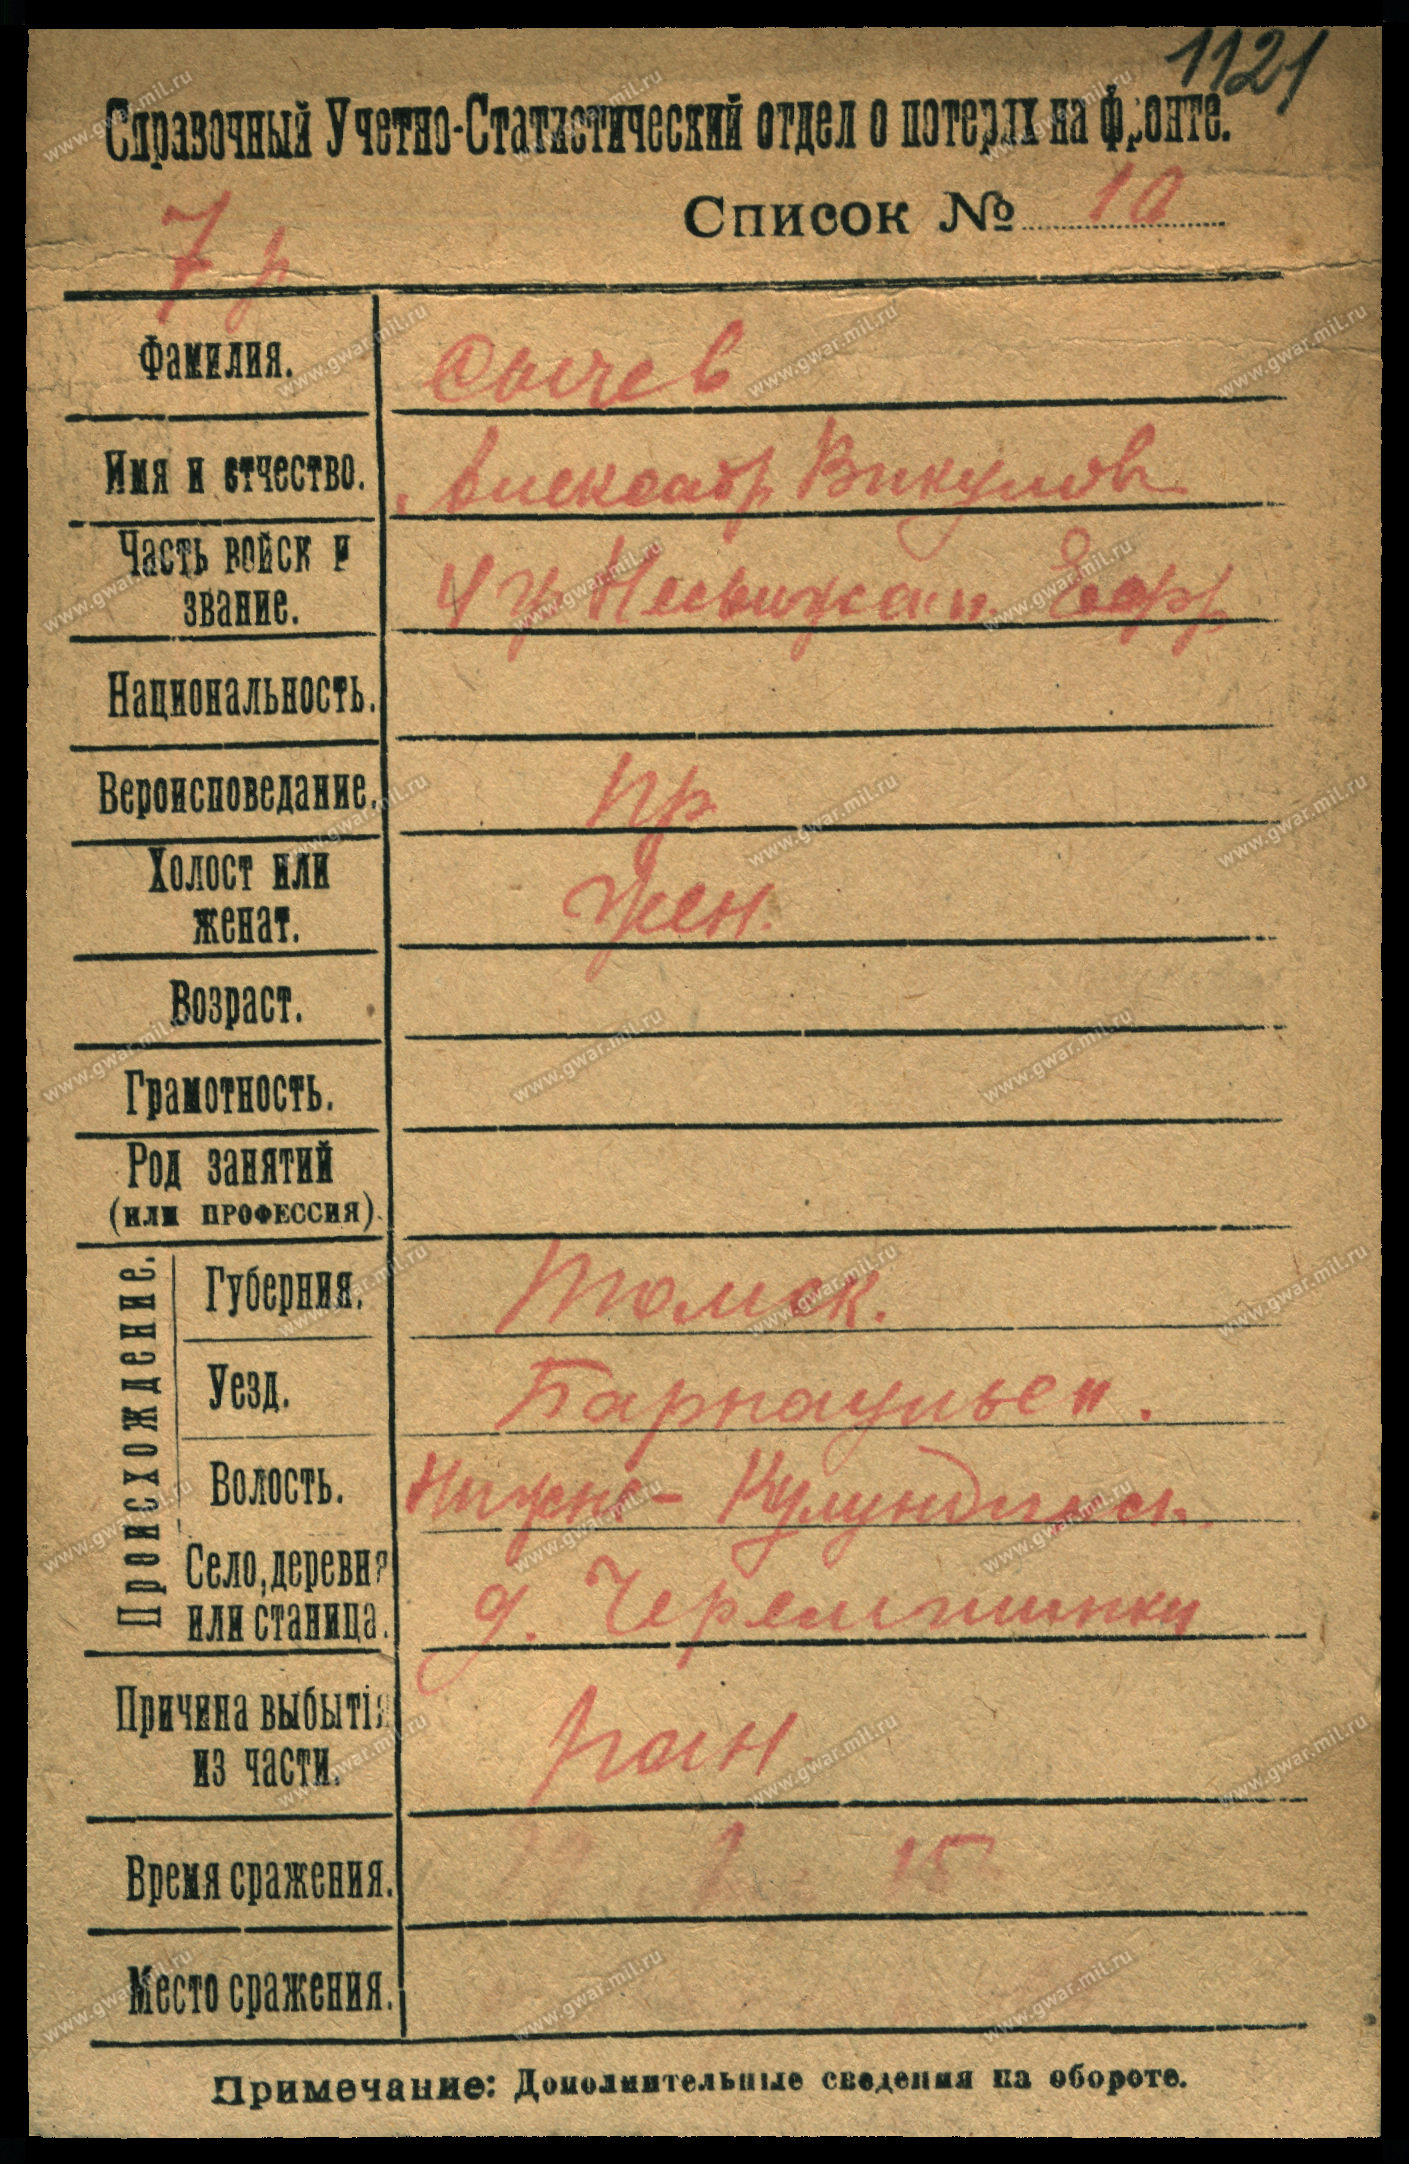 1121
Справочный Учетно-Статистический отдел о потерях на фронте.
Список № 10
7 р
Фамилия. Сычев
Имя и отчество. Александр Викулов
Часть войск и звание. Ефр
Национальность.
Вероисповедание. пр
Холост или женат. жен.
Возраст.
Грамотность.
Род занятий
(или профессия).
Происхождение.
Губерния. Томск.
Уезд. Барнаульск.
Волость. Нижне-Кулундинск.
Село, деревня или станица. д. Черемшинки
Причина выбытія из части. ран.
Время сражения. 15
Место сражения.
Примечание: Дополнительные сведения на обороте.
www.gwar.mil.ru